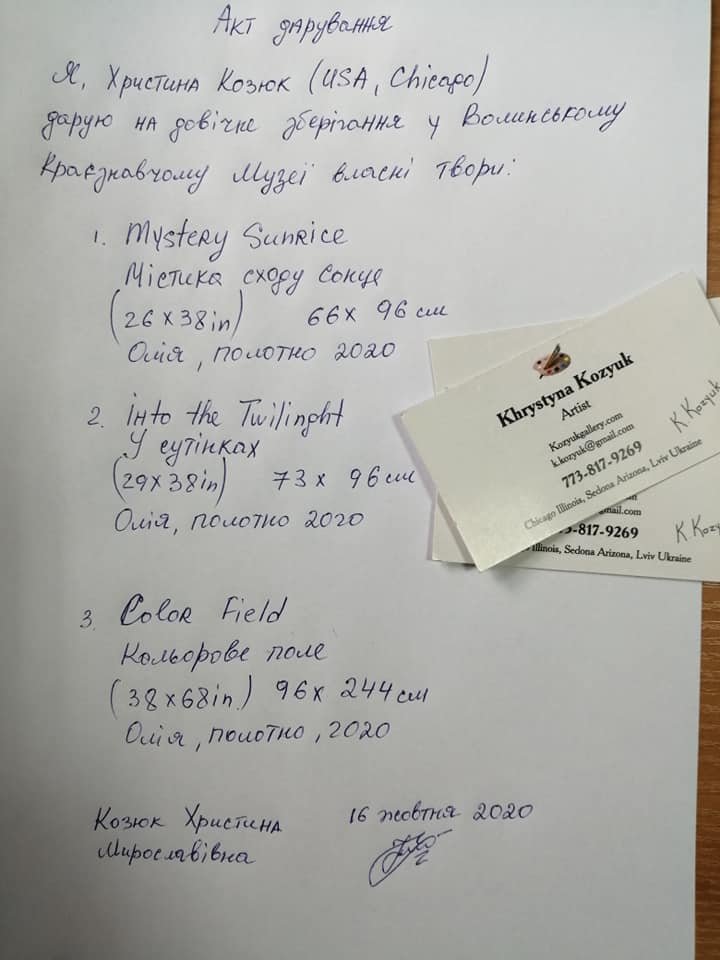 Акт дарування
Я, Христина Козюк (USA, Chicago)
дарую на довічне зберігання у Волинському
Краєзнавчому Музеї власні твори:
1. Mystery Sunrice
Містика сходу сонце
(26 x 38 in) 66 x 96 см
Олія, полотно 2020
2. Into the Twilinght
У сутінках
(29 x 38 in) 73 x 96 см
Олія, полотно 2020
3. Color Field
Кольорове поле
(38 x 68 in.) 96 x 244 см
Олія, полотно, 2020
Козюк Христина 16 жовтня 2020
Мирославівна
Khrystyna Kozyuk
Artist
Kozyukgallery.com
k.kozyuk@gmail.com
773-817-9269
Chicago Illinois, Sedona Arizona, Lviv Ukraine
K. Kozyuk
mail.com
-817-9269
Illinois, Sedona Arizona, Lviv Ukraine
K. Kozy